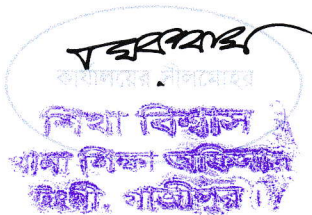 কার্যালয়ের সীলমোহর
শিখা বিশ্বাস
থানা শিক্ষা অফিসার
টংগী, গাজীপুর।